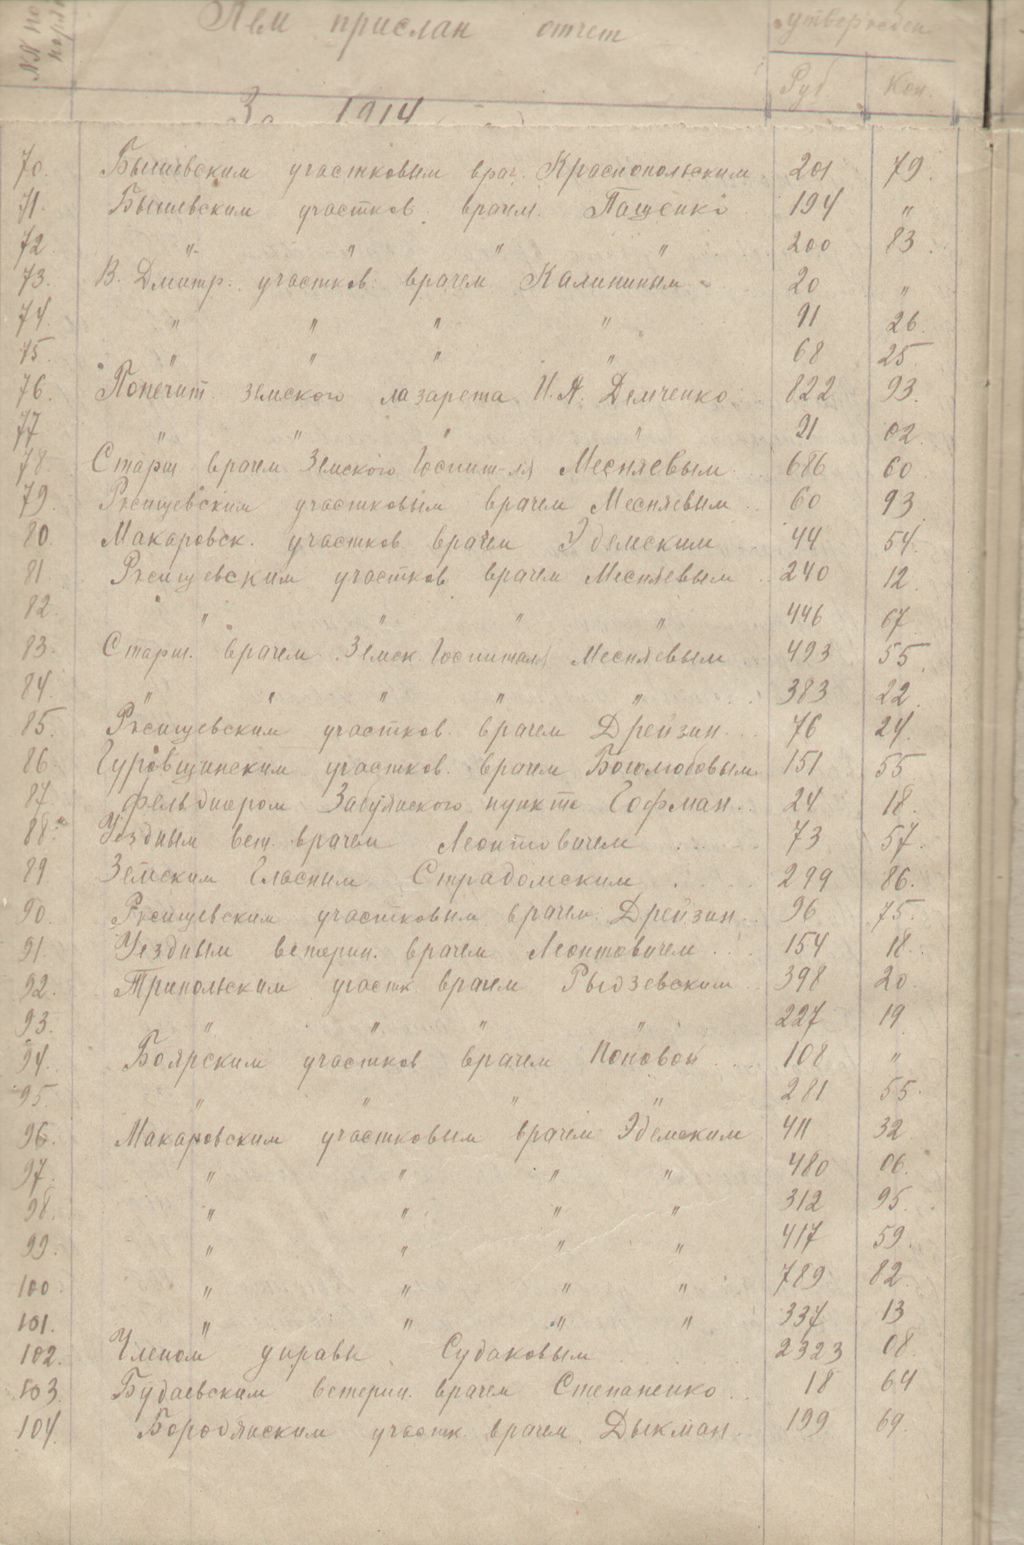 №№ по порядк Кем прислан отчет утвержден
Руб. Коп.
За 1914
70. Бышевским участковым врач. Краснопольским 201 79.
71. Бышевским участков. врачем. Пащенко 194 "
72 " " " " 200 83.
73. В. Дмитр. участков. врачем Калининым 20 "
74. " " " " 91 26.
75. " " " " 68 25
76. Попечит. земского лазарета И. А. Демченко 822 93.
77 " " " " 21 02.
78 Старш врачем Земского Госпит-ля Месняевым 686 60.
79. Ржищевским участковым врачем Месняевым 60 93
80. Макаровск. участков врачем Эдемским 44 54.
81 Ржищевским участков врачем Месняевым 240 12.
82. " " " " 446 67
83. Старш. врачем Земск. Госпиталя Месняевым 493 55.
84. " " " " 383 22.
85. Ржищевским участков. врачем Дрейзин 76 24.
86. Гуровщинским участков. врачем Боголюбовым 151 55
87 фельдшером Забуянского пункта Гофман. 24 18.
88. Уездным вет. врачем Леонтовичем 73 57.
89 Земским Гласным Страдомским 299 86.
90. Ржищевским участковым врачем Дрейзин 96 75.
91. Уездным ветерин. врачем Леонтовичем 154 18.
92. Трипольским участк врачем Рыдзевским 398 20.
93. " " " " 227 19
94. Боярским участков врачем Поповой 108 "
95. " " " " 281 55.
96. Макаровским участковым врачем Эдемским 411 32
97. " " " " 480 06.
98. " " " " 312 95.
99. " " " " 417 59.
100. " " " " 789 82.
101. " " " " 337 13
102. Членом управы Судаковым 2323 08.
103. Будаевским ветерин. врачем Степаненко 18 64
104. Бородянским участк врачем Дыкман 199 69.